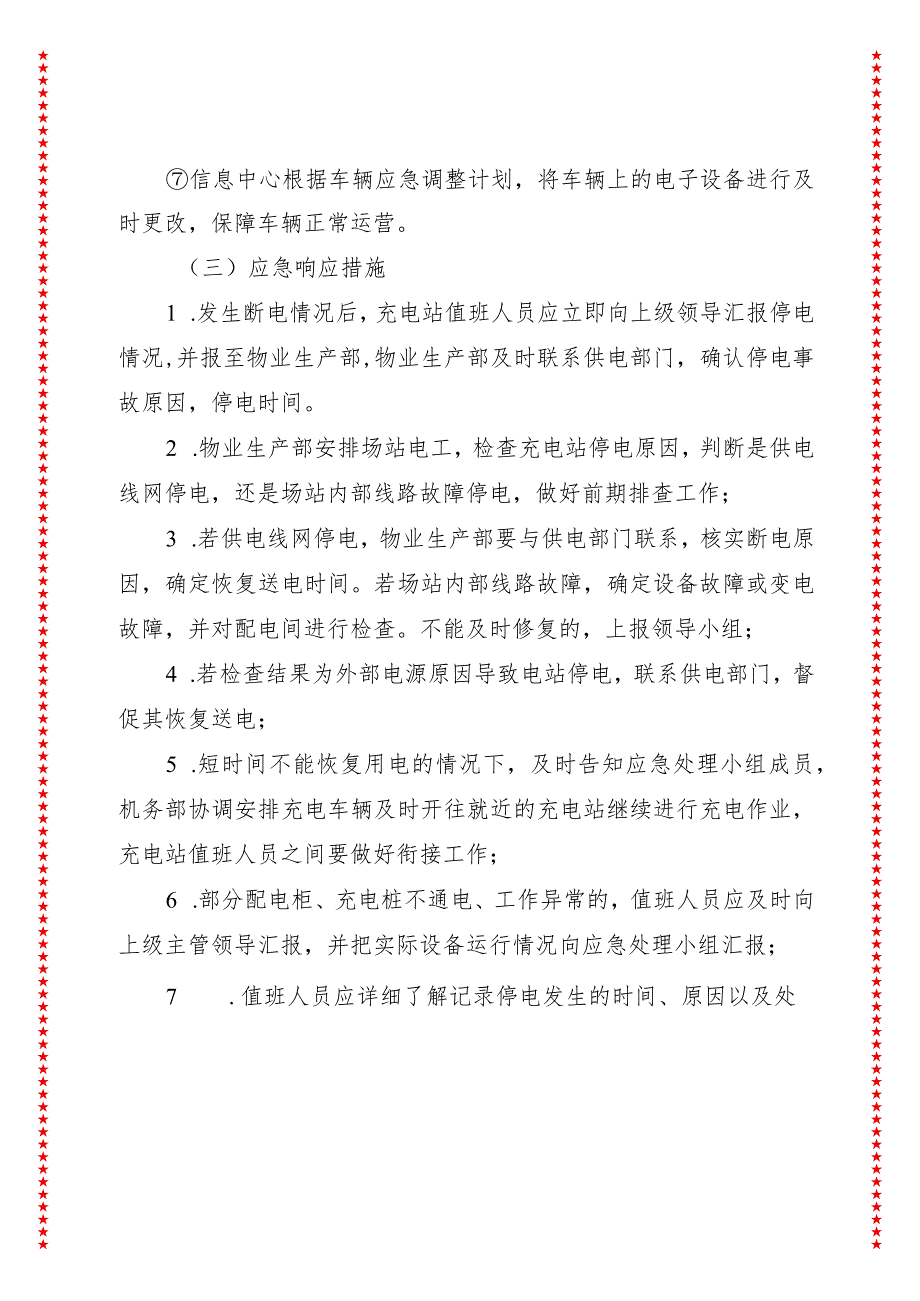 ⑦信息中心根据车辆应急调整计划，将车辆上的电子设备进行及
时更改，保障车辆正常运营。
（三）应急响应措施
1 .发生断电情况后，充电站值班人员应立即向上级领导汇报停电
情况,并报至物业生产部,物业生产部及时联系供电部门，确认停电事
故原因，停电时间。
2 .物业生产部安排场站电工，检查充电站停电原因，判断是供电
线网停电，还是场站内部线路故障停电，做好前期排查工作；
3 .若供电线网停电，物业生产部要与供电部门联系，核实断电原
因，确定恢复送电时间。若场站内部线路故障，确定设备故障或变电
故障，并对配电间进行检查。不能及时修复的，上报领导小组；
4 .若检查结果为外部电源原因导致电站停电，联系供电部门，督
促其恢复送电；
5 .短时间不能恢复用电的情况下，及时告知应急处理小组成员，
机务部协调安排充电车辆及时开往就近的充电站继续进行充电作业，
充电站值班人员之间要做好衔接工作；
6 .部分配电柜、充电桩不通电、工作异常的，值班人员应及时向
上级主管领导汇报，并把实际设备运行情况向应急处理小组汇报；
7 .值班人员应详细了解记录停电发生的时间、原因以及处